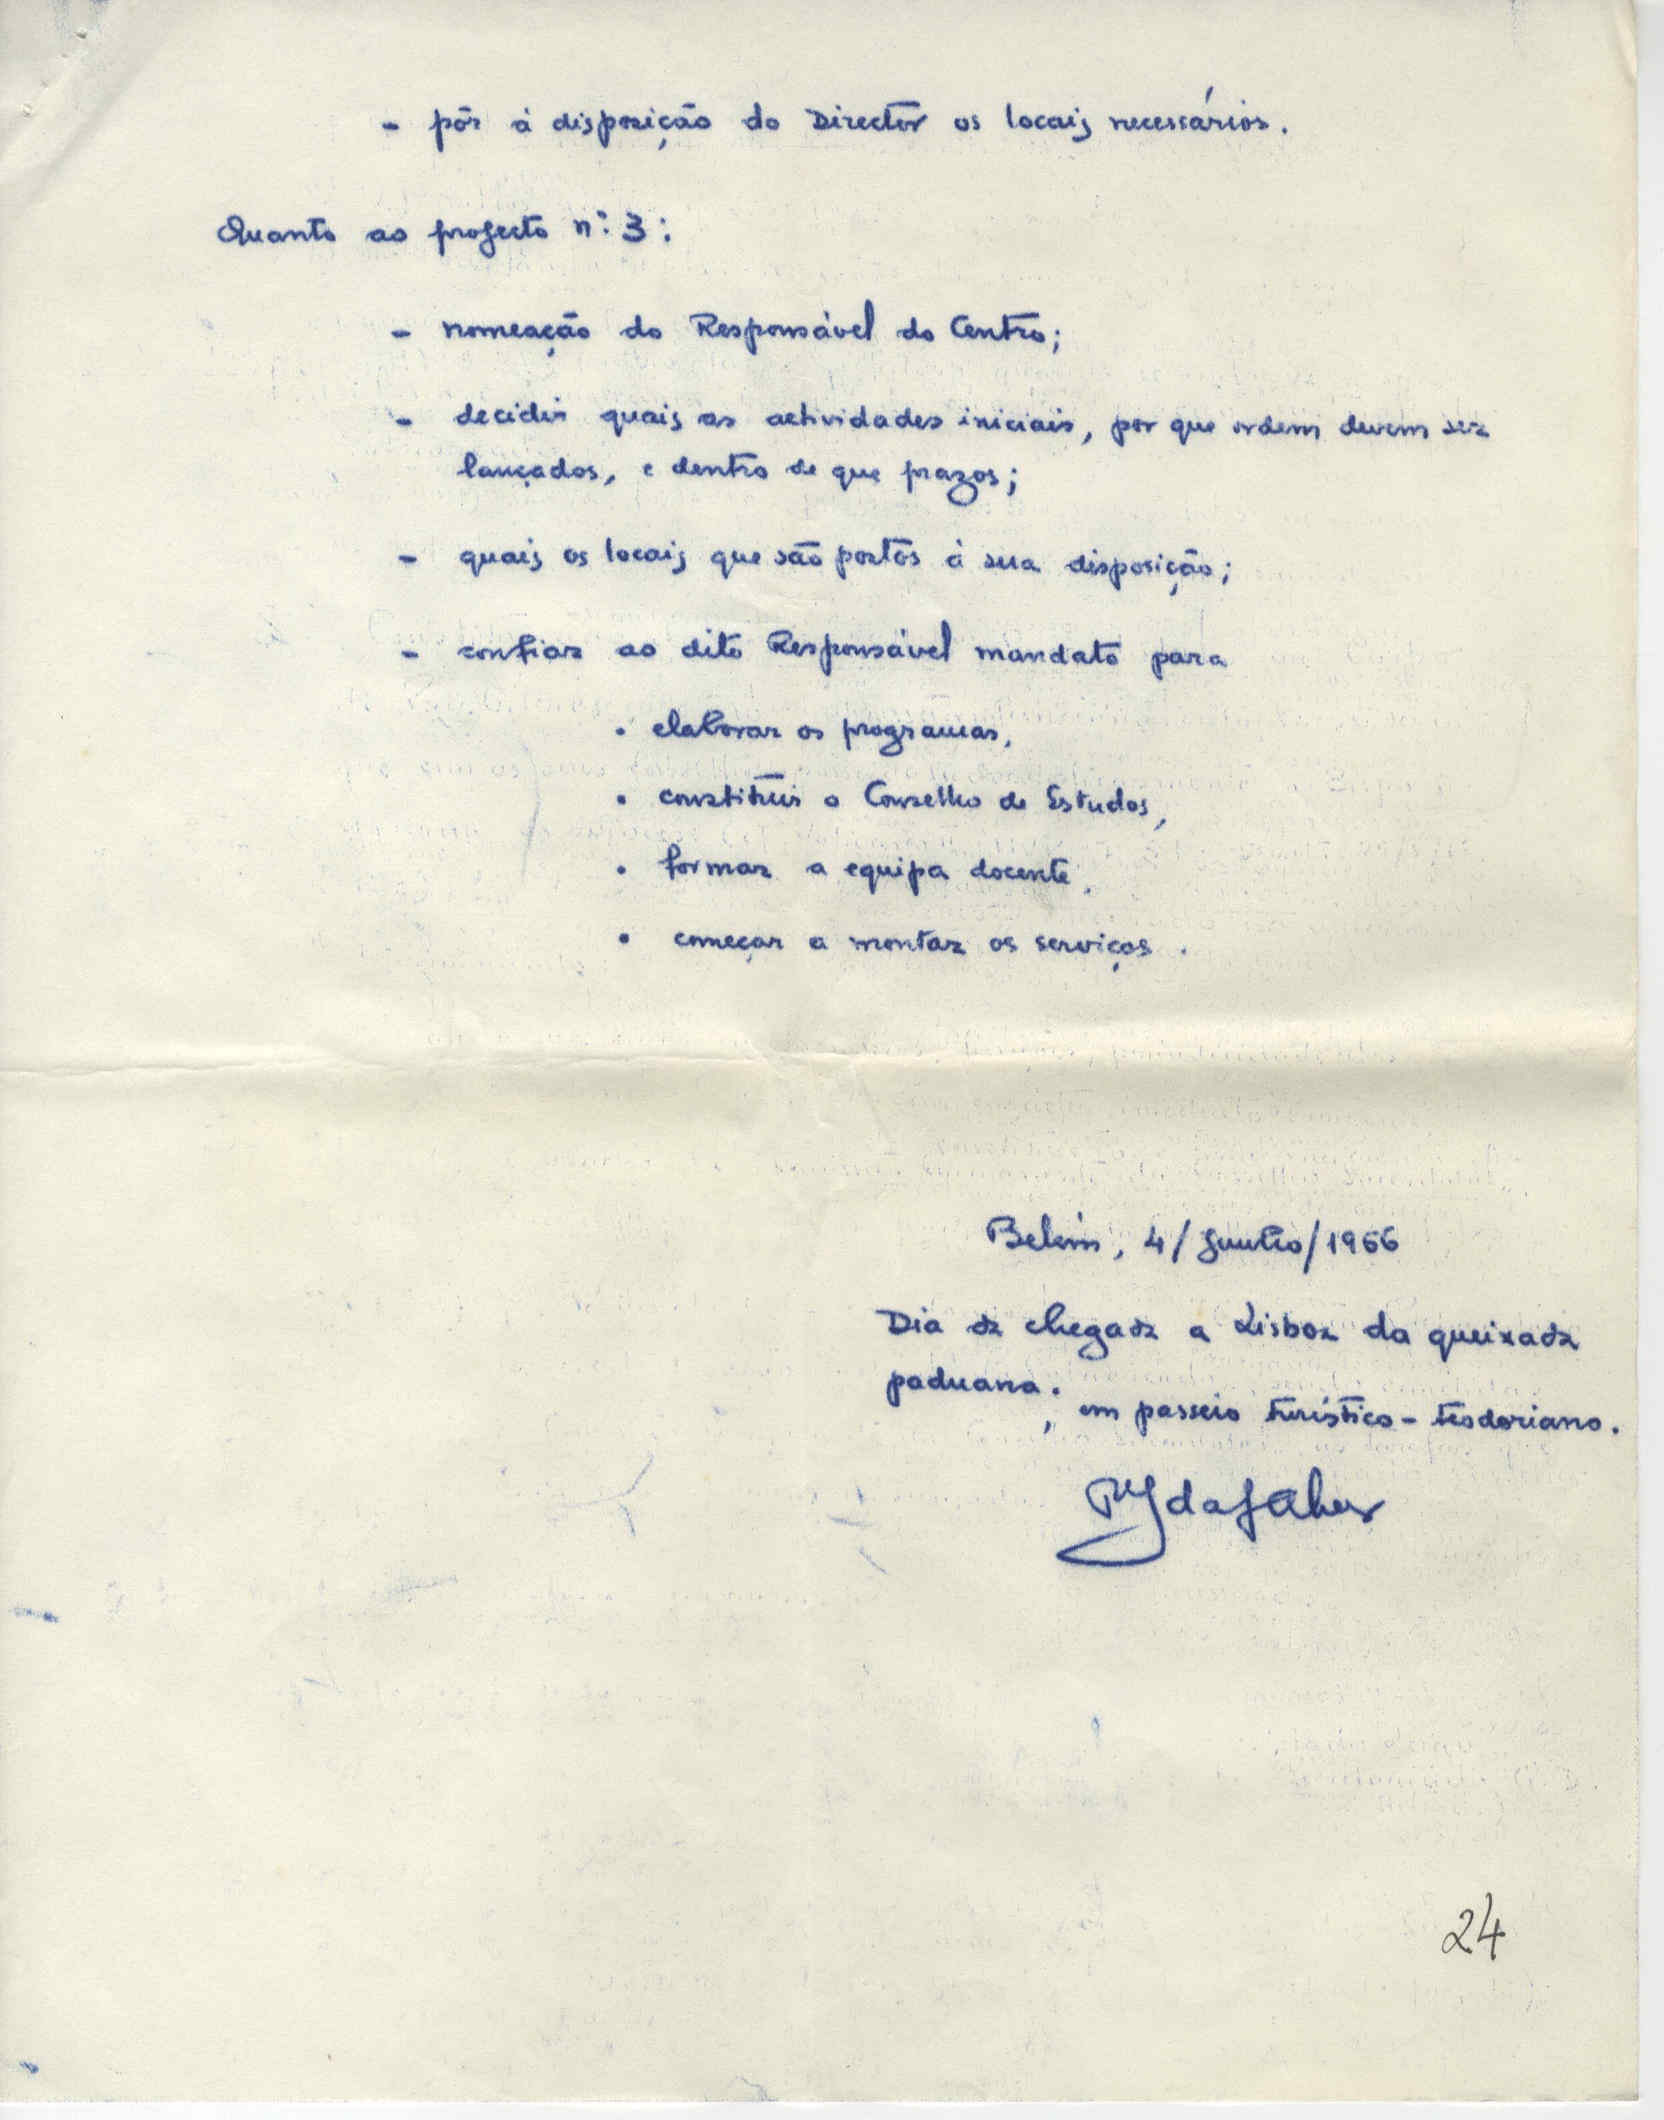 - pôr à disposição do Director os locais necessários.
Quanto ao projecto nº 3:
- nomeação do Responsável do Centro;
- decidir quais as actividades iniciais, por que ordem devem ser
lançados, e dentro de que prazos;
- quais os locais que são postos à sua disposição;
- confiar ao dito Responsável mandato para
• elaborar os programas,
• constituir o Conselho de Estudos,
• formar a equipa docente,
• começar a montar os serviços.
Belém, 4/Junho/1966
Dia da chegada a Lisboa da queixada
paduana; em passeio turístico-teodoriano.
24